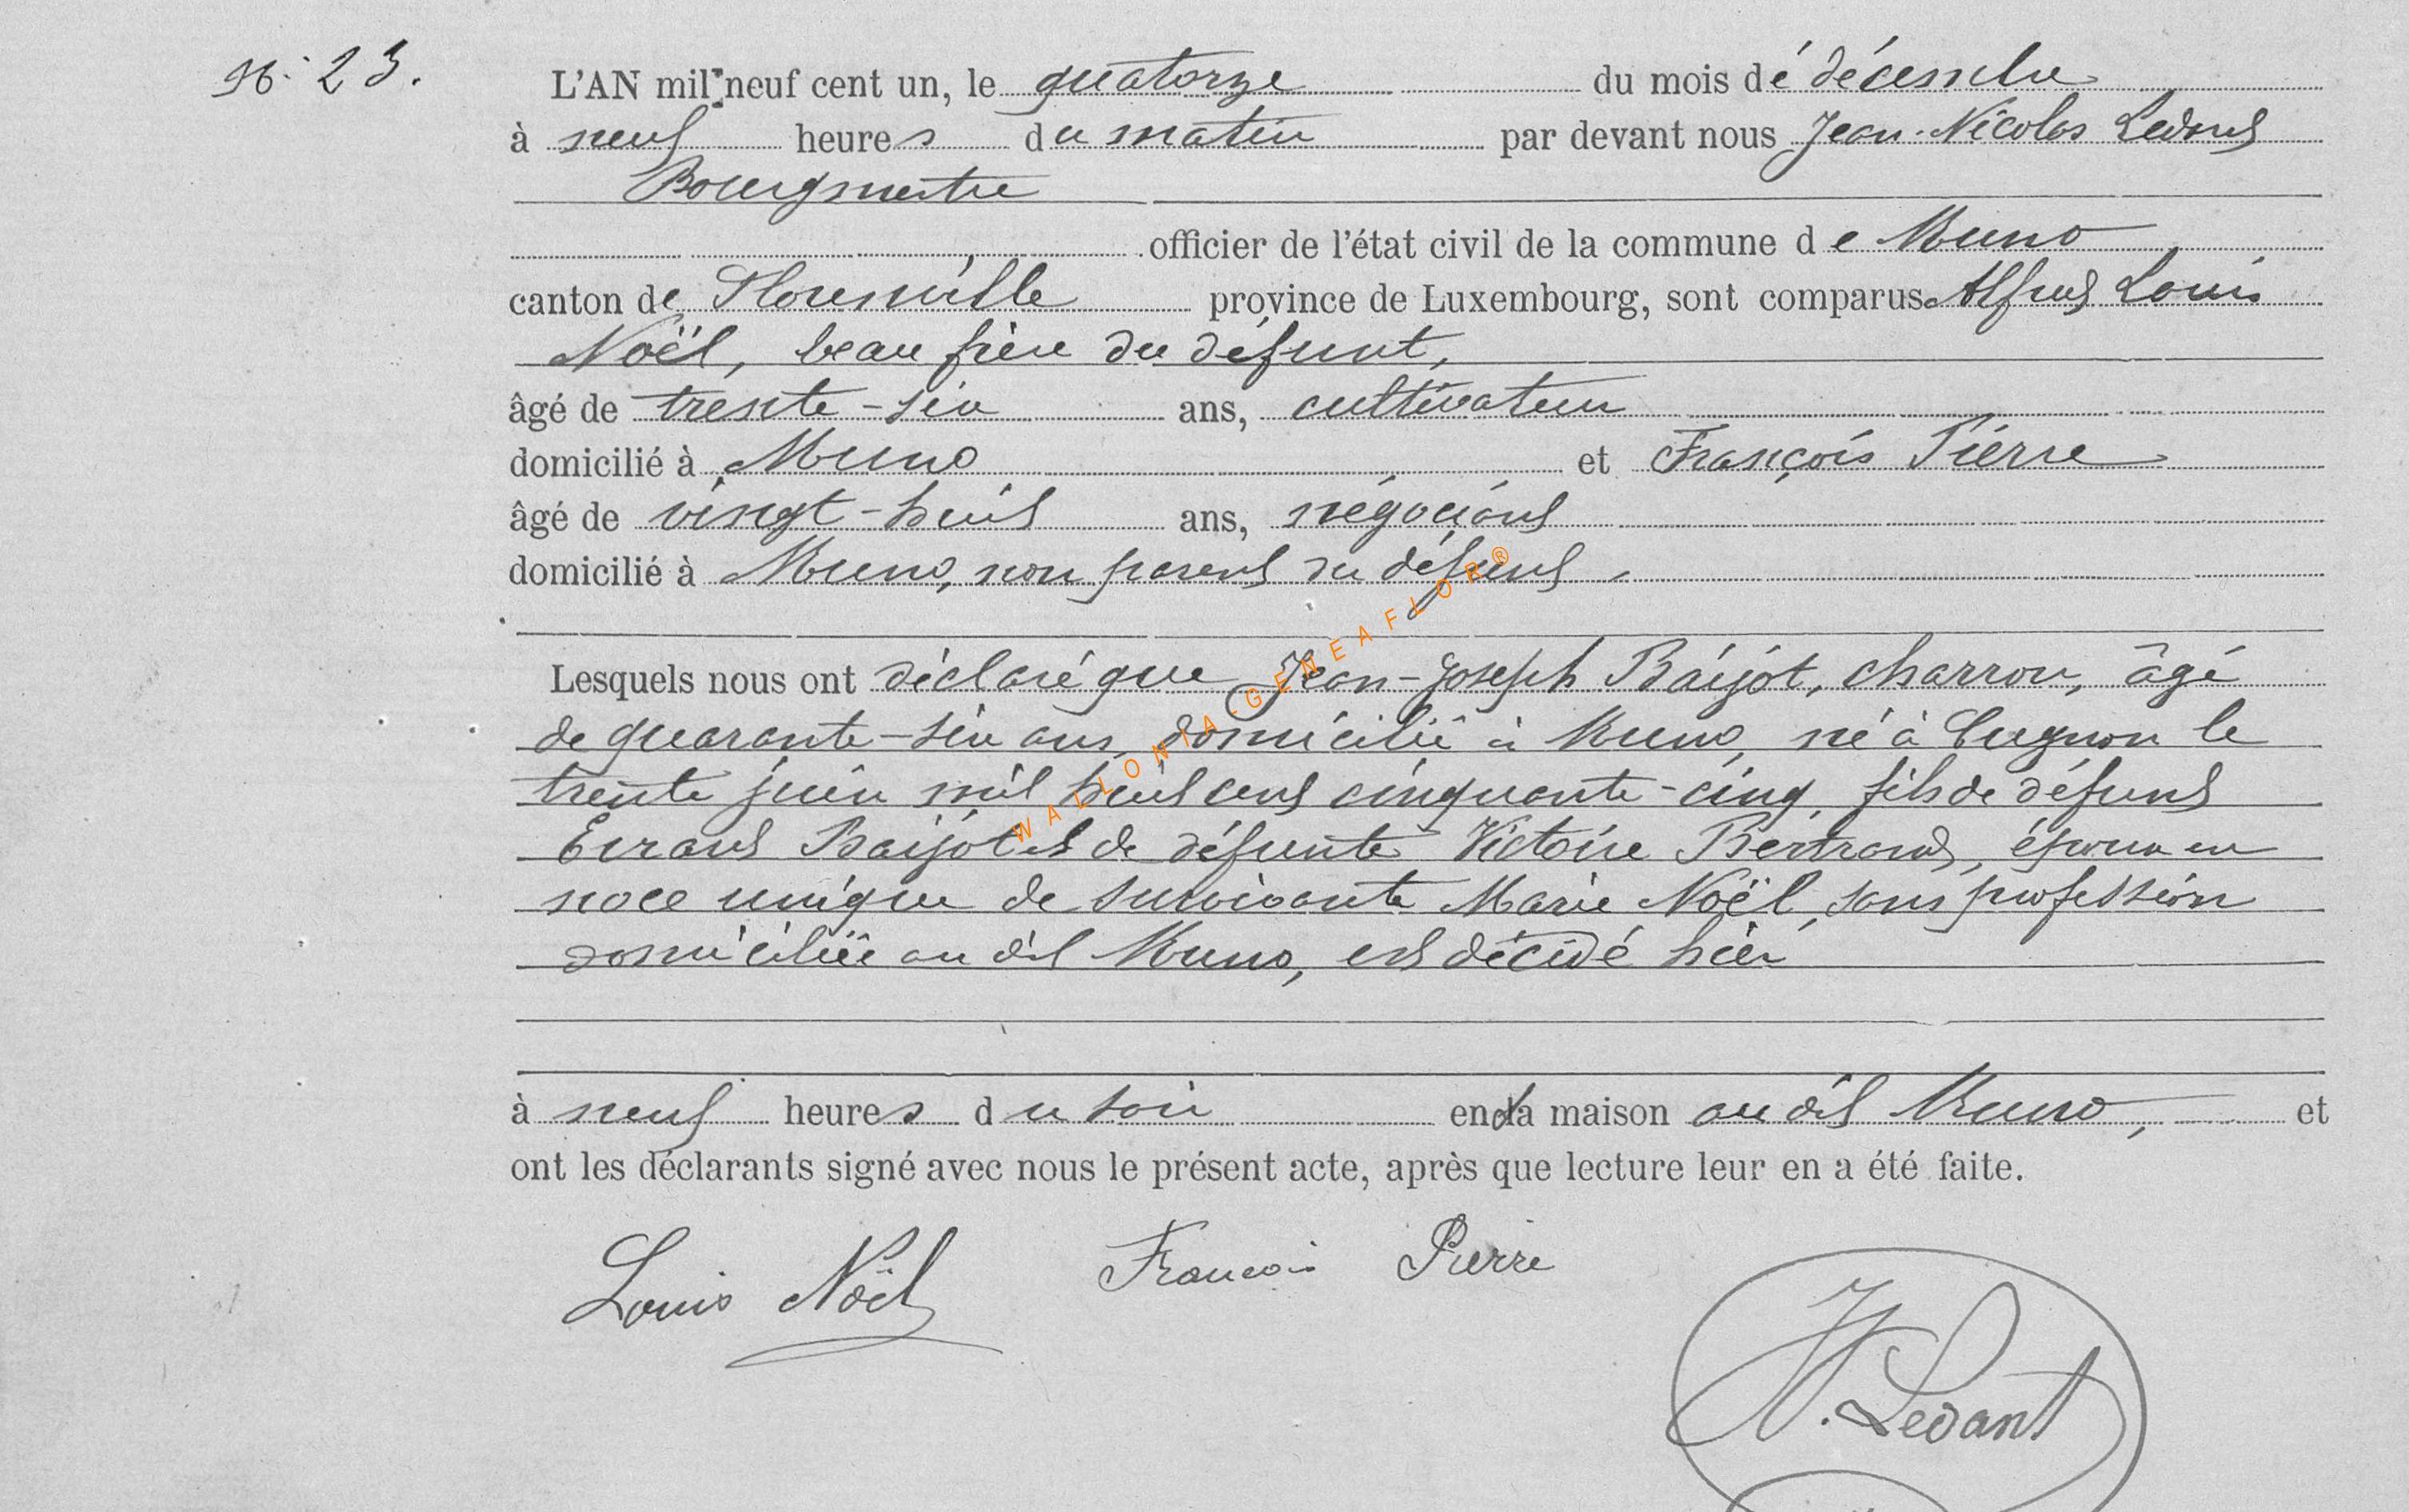 N° 23.
L'AN mil neuf cent un, le quatorze du mois de décembre
à neuf heures du matin par devant nous Jean-Nicolas Ledant
Bourgmestre
officier de l'état civil de la commune de Muno
canton de Florenville province de Luxembourg, sont comparus Alfred Louis
Noël, beau frère du défunt,
âgé de trente-six ans, cultivateur
domicilié à Muno et François Pierre
âgé de vingt-huit ans, négociant
domicilié à Muno, non parent du défunt
Lesquels nous ont déclaré que Jean-Joseph Baijot, charron, âgé
de quarante-six ans, domicilié à Muno, né à Cugnon le
trente juin mil huit cent cinquante-cinq, fils de défunt
Evrard Baijot et de défunte Victoire Bertrand, époux en
noce unique de survivante Marie Noël, sans profession
domiciliée au dit Muno, est décédé hier
à neuf heures du soir en sa maison au dit Muno, et
ont les déclarants signé avec nous le présent acte, après que lecture leur en a été faite.
Louis Noël François Pierre
N. Ledant
WALLONIA-GENEAFLOR®